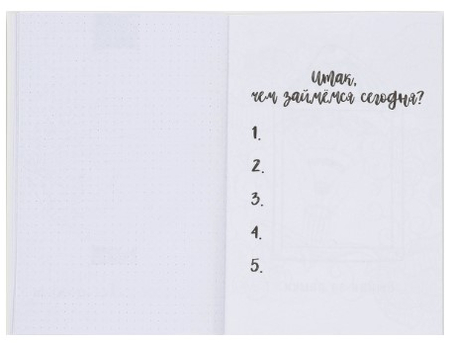 Итак,
чем займёмся сегодня?
1.
2.
3.
4.
5.